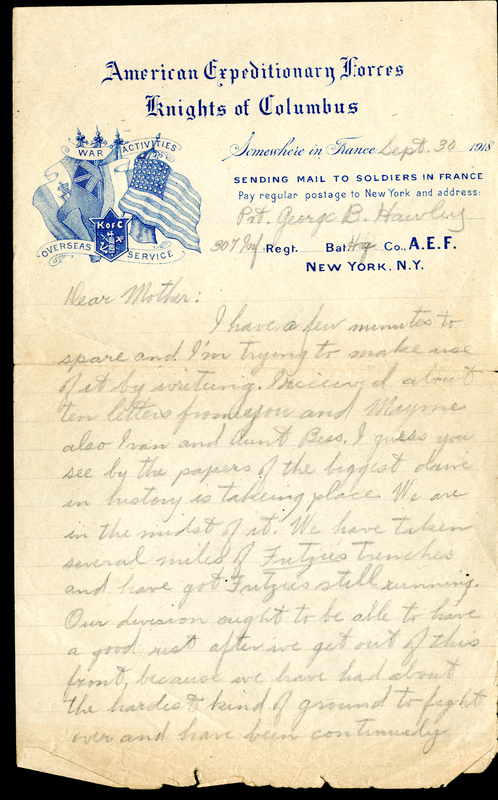 American Expeditionary Forces
Knights of Columbus
WAR ACTIVITIES
K of C
OVERSEAS SERVICE
Somewhere in France Sept. 30 1918
SENDING MAIL TO SOLDIERS IN FRANCE
Pay regular postage to New York and address:
Pvt. George B. Hawley
307 Inf Regt. Bat Hq Co., A.E.F.
NEW YORK, N.Y.
Dear Mother:
I have a few minutes to
spare and I'm trying to make use
of it by writing. I received about
ten letters from you and Mayme
also Ivan and Aunt Bess. I guess you
see by the papers of the biggest drive
in history is takeing place. We are
in the midst of it. We have taken
several miles of Fritzies trenches
and have got Fritzies still running.
Our division ought to be able to have
a good rest after we get out of this
front, because we have had about
the hardest kind of ground to fight
over and have been continuely